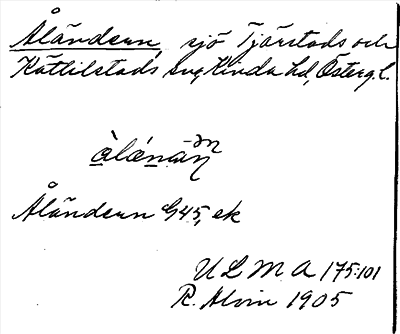 Åländern, sjö Tjärstads och
Kättilstads snr, Kinda hd, Österg. l.
Åländern G45, ek
ULMA 175:101
R. Alvin 1905